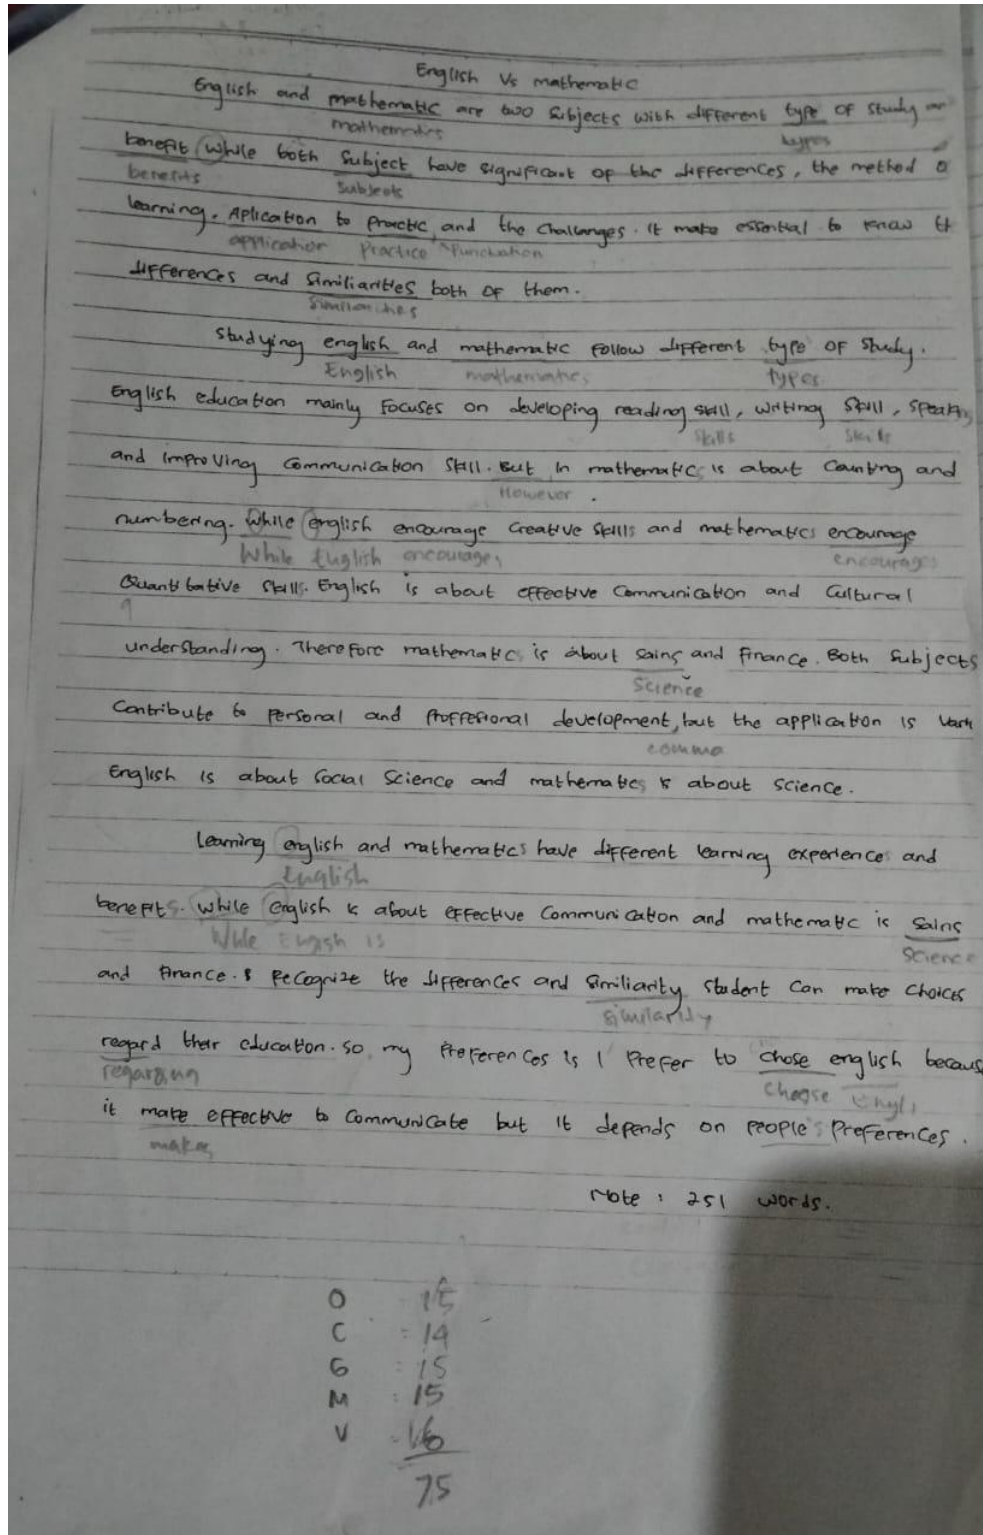 English Vs mathematic
English and mathematic are two subjects with different type of study
mathematics types
benefit While both subject have significant of the differences, the method
benefits subjects
learning. Aplication to practic, and the challanges. It make essential to know
application Practice Punctuation
differences and similiarities both of them.
Similarities
Studying english and mathematic follow different type of study.
English mathematics types
English education mainly focuses on developing reading skill, writing skill,
skills skills
and improving communication skill. But in mathematics is about counting and
However
numbering. While english encourage creative skills and mathematics encourage
While English encourages encourages
Quantitative skills. English is about effective communication and cultural
q
understanding. Therefore mathematics is about sains and finance. Both subjects
Science
Contribute to personal and proffesional development, but the application is
comma
English is about social science and mathematics is about science.
Learning english and mathematics have different learning experiences and
English
benefits. While english is about effective communication and mathematic is sains
While English is Science
and finance. Recognize the differences and similiarity student can make choices
similarity
regard their education. so my preferences is I prefer to chose english
regarging choose
it make effective to communicate but it depends on people's preferences.
makes
Note : 251 words.
O 15
C : 14
G : 15
M : 15
V 16
75